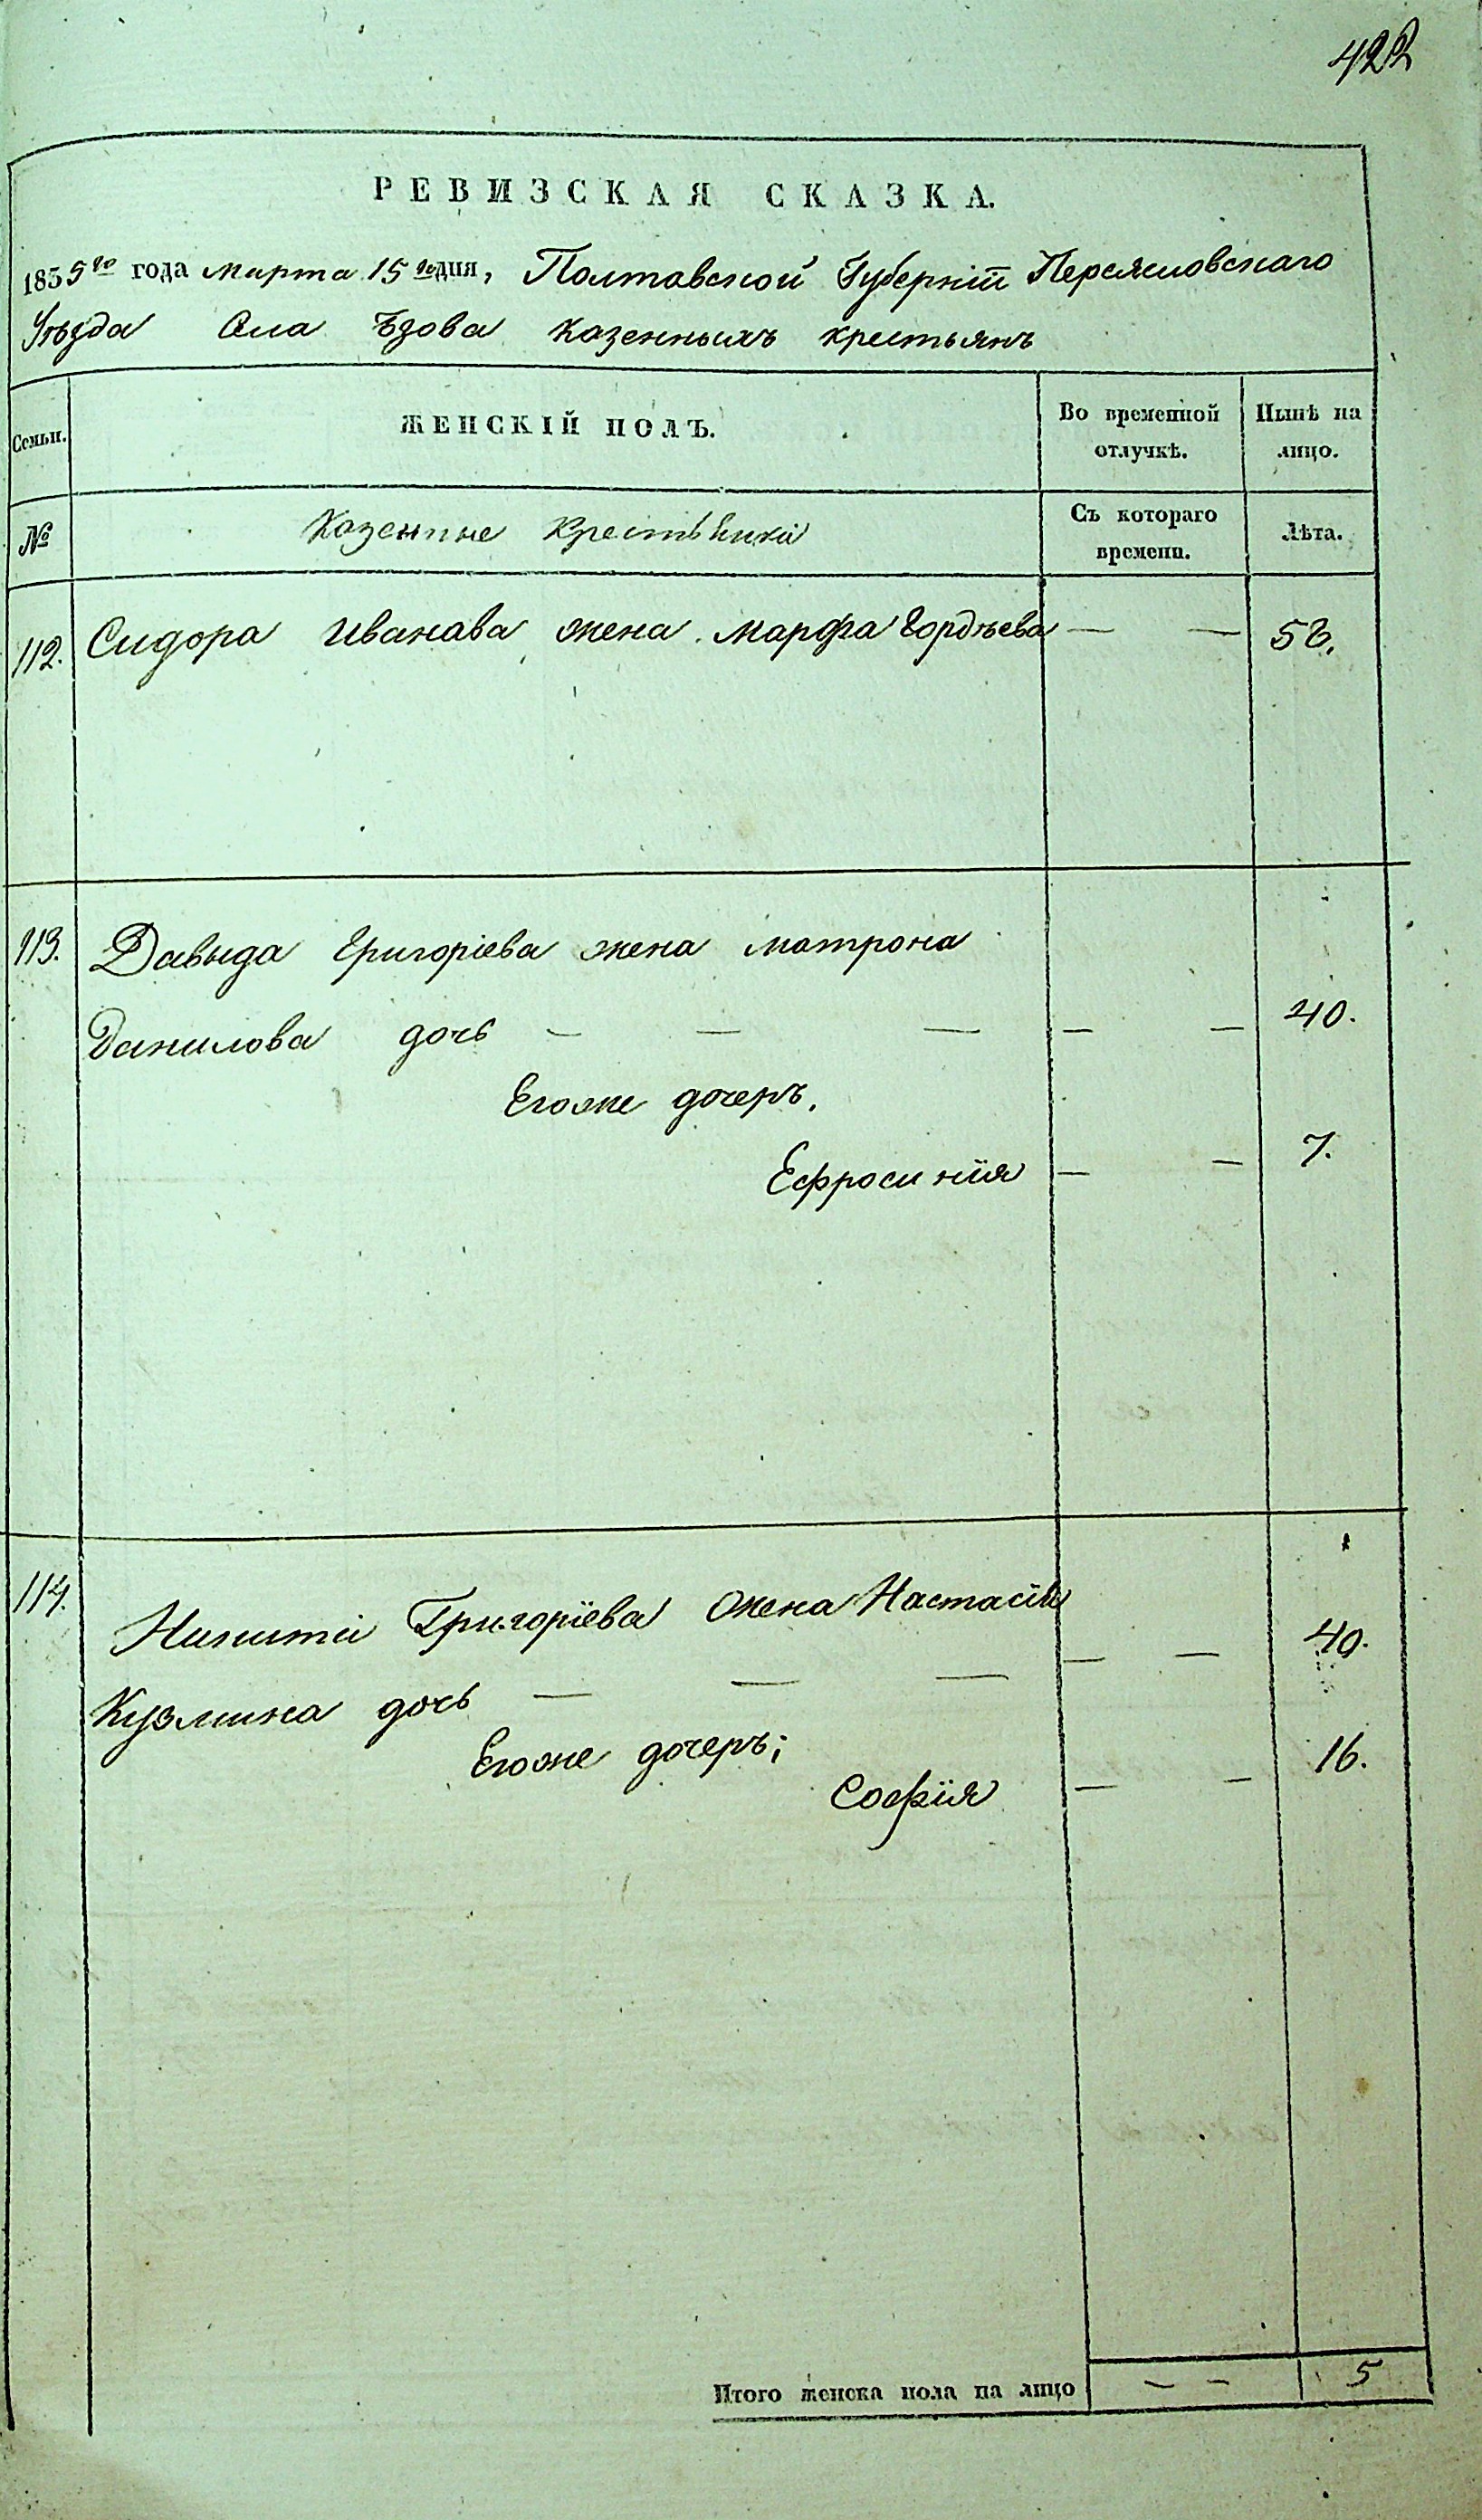 422
РЕВИЗСКАЯ СКАЗКА.
1835го года марта 15го дня, Полтавской Губерніи Переясловскаго
Уѣзда Села Ѣзова казенныхъ крестьянъ
Семьи. ЖЕНСКІЙ ПОЛЪ. Во временной отлучкѣ. Нынѣ на лицо.
№ Казенные Крестьянки Съ котораго времени. Лѣта.
112. Сидора Иванава жена Марфа Гордѣева — —
113. Давыда Григоріева жена Матрона
Данилова дочь — — — — — 40.
Егоже дочеръ.
Ефросинія — — 7.
114. Никити Григоріева жена Настасія
Кузмина дочь — — — — — 40.
Егоже дочеръ;
Софія — — 16.
Итого женска пола на лицо — — 5